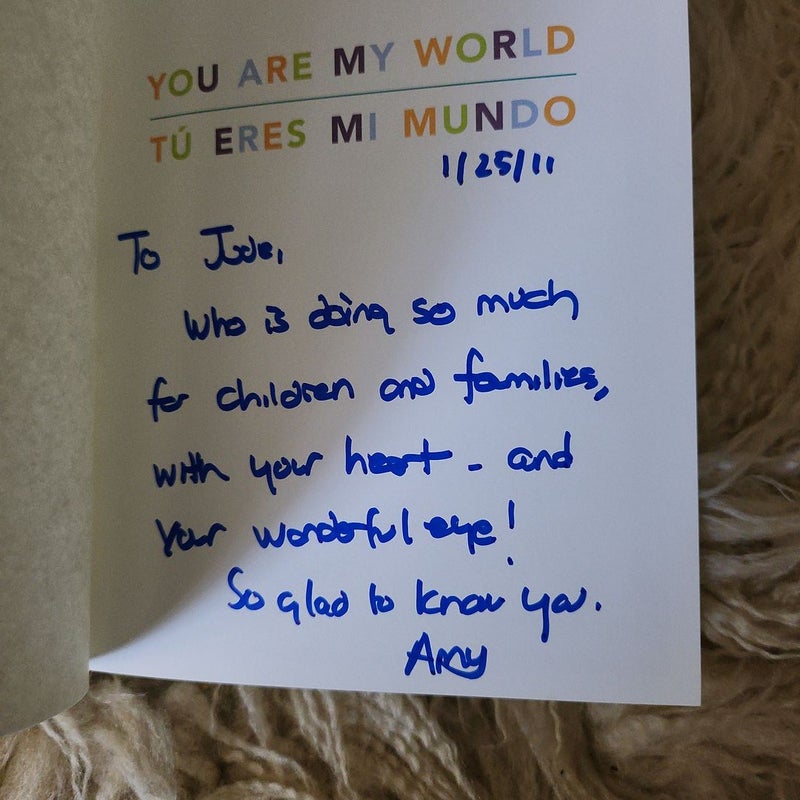 YOU ARE MY WORLD
TÚ ERES MI MUNDO
1/25/11
To Jude,
Who is doing so much
for children and families,
with your heart - and
your wonderful eye!
So glad to know you.
Amy